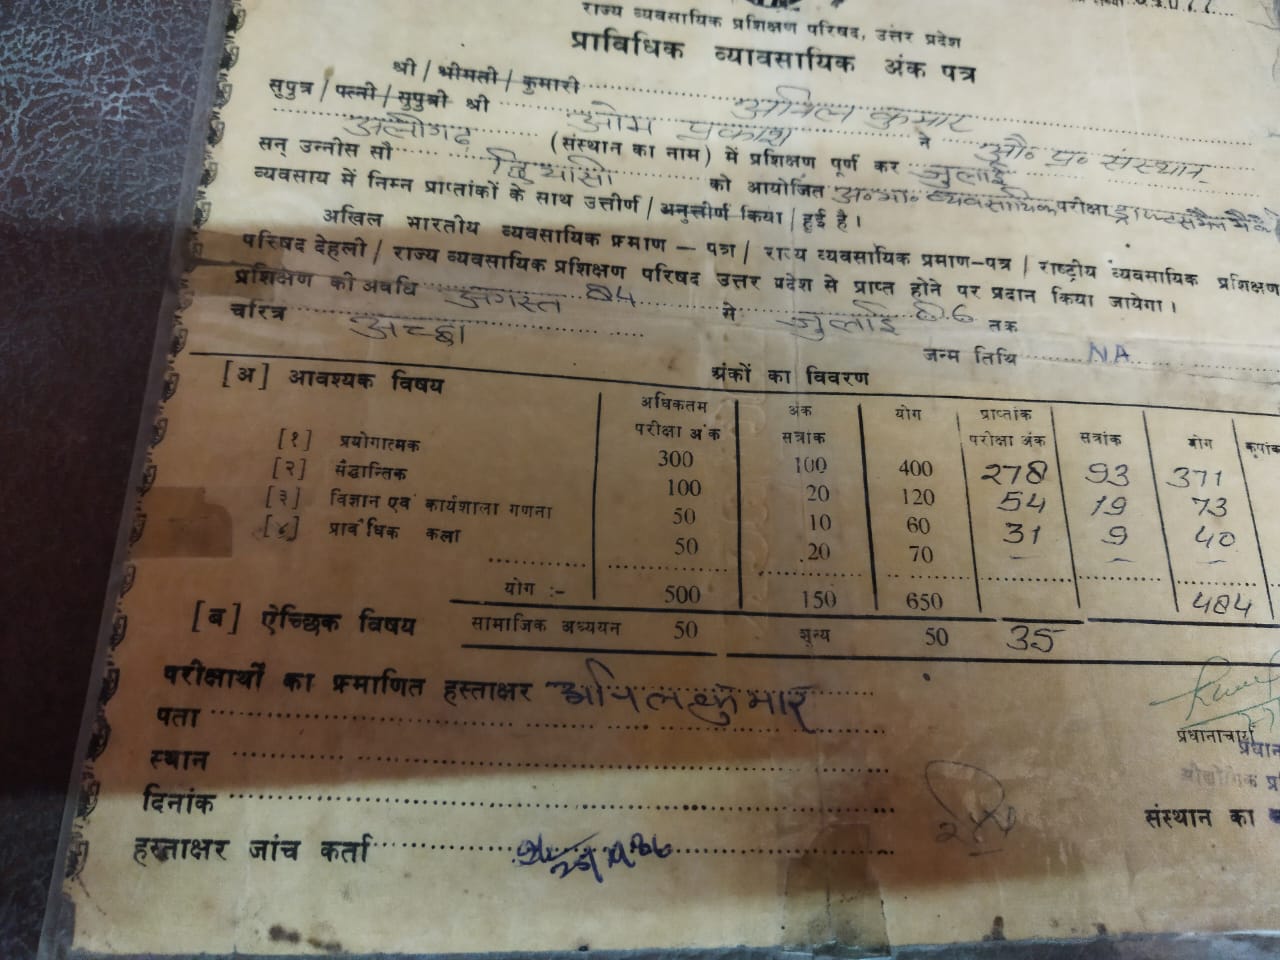 राज्य व्यवसायिक प्रशिक्षण परिषद, उत्तर प्रदेश
प्राविधिक व्यावसायिक अंक पत्र
श्री / श्रीमती / कुमारी अनिल कुमार
सुपुत्र / पत्नी / सुपुत्री श्री ओम प्रकाश ने औ० प्र० संस्थान
अलीगढ़ (संस्थान का नाम) में प्रशिक्षण पूर्ण कर जुलाई
सन् उन्नीस सौ छियासी को आयोजित अ० भा० व्यवसायिक परीक्षा
व्यवसाय में निम्न प्राप्तांकों के साथ उत्तीर्ण / अनुत्तीर्ण किया / हुई है।
अखिल भारतीय व्यवसायिक प्रमाण – पत्र / राज्य व्यवसायिक प्रमाण-पत्र / राष्ट्रीय व्यवसायिक प्रशिक्षण
परिषद देहली / राज्य व्यवसायिक प्रशिक्षण परिषद उत्तर प्रदेश से प्राप्त होने पर प्रदान किया जायेगा।
प्रशिक्षण की अवधि अगस्त 84 से जुलाई 86 तक
चरित्र अच्छा
जन्म तिथि NA
[अ] आवश्यक विषय अंकों का विवरण
अधिकतम अंक योग प्राप्तांक
परीक्षा अंक सत्रांक परीक्षा अंक सत्रांक योग
[१] प्रयोगात्मक 300 100 400 278 93 371
[२] सैद्धान्तिक 100 20 120 54 19 73
[३] विज्ञान एवं कार्यशाला गणना 50 10 60 31 9 40
[४] प्राविधिक कला 50 20 70 – – –
योग :- 500 150 650 484
[ब] ऐच्छिक विषय सामाजिक अध्ययन 50 शून्य 50 35
परीक्षार्थी का प्रमाणित हस्ताक्षर अनिल कुमार
पता
स्थान
दिनांक
हस्ताक्षर जांच कर्ता
प्रधानाचार्य
संस्थान का